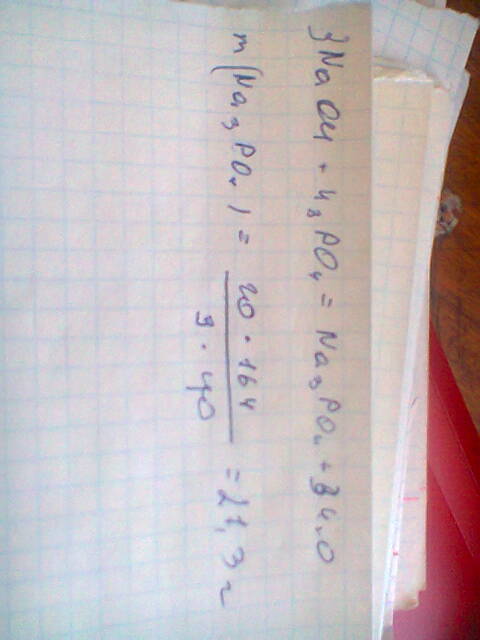 3NaOH + H₃PO₄ = Na₃PO₄ + 3H₂O
m(Na₃PO₄) = 20 · 164 / 3 · 40 = 27,3 г